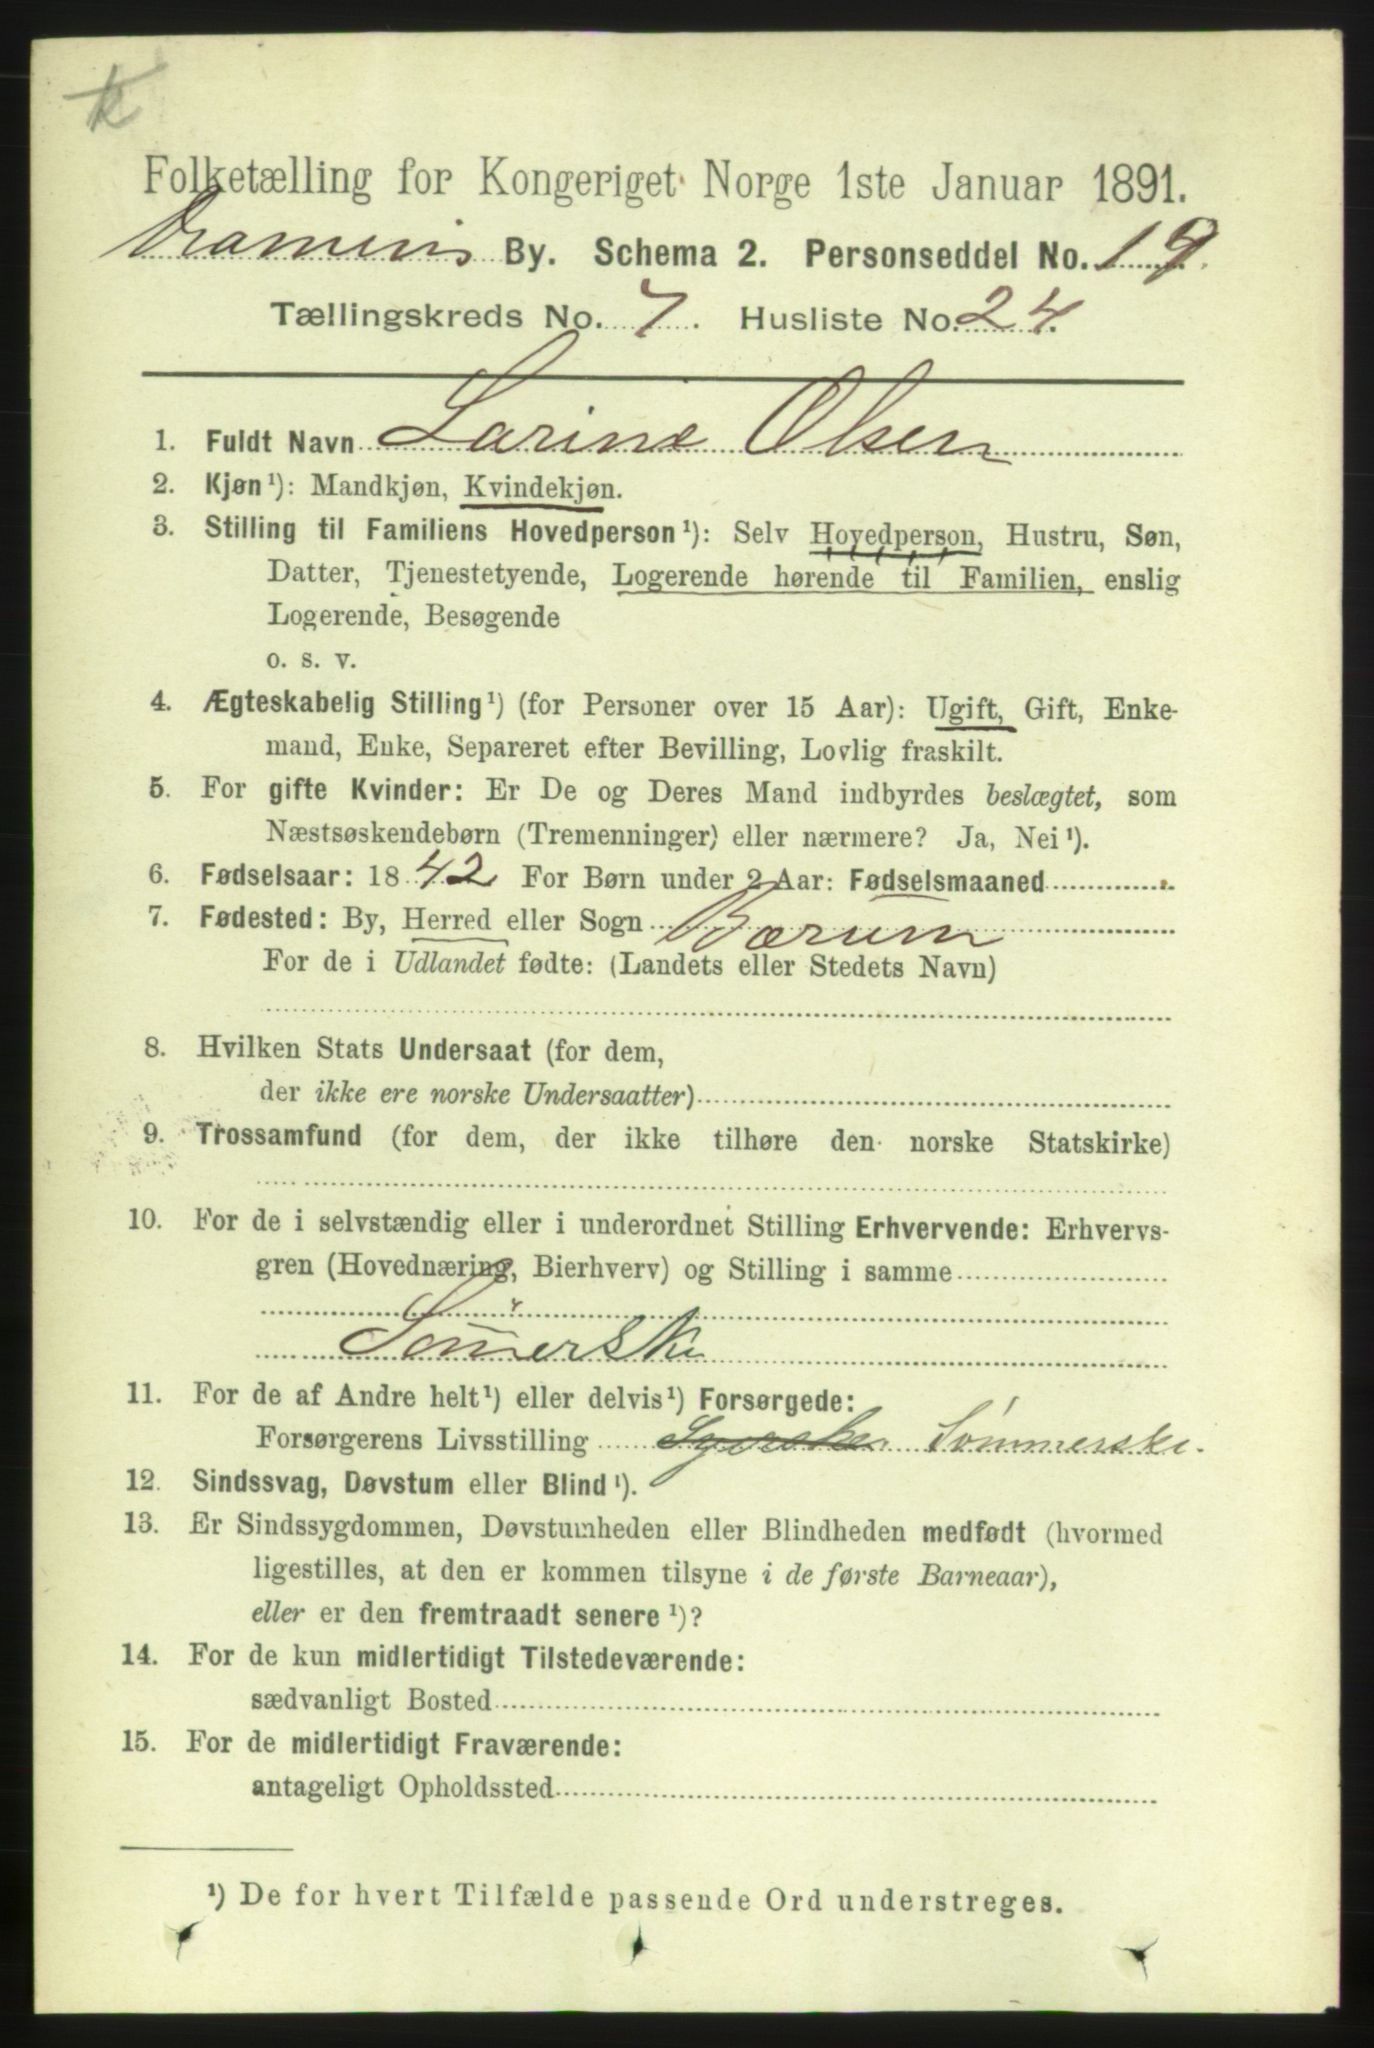 k
Folketælling for Kongeriget Norge 1ste Januar 1891.
Dramens By. Schema 2. Personseddel No. 19.
Tællingskreds No. 7. Husliste No. 24.
1. Fuldt Navn Larine Olsen
2. Kjøn¹): Mandkjøn, Kvindekjøn.
3. Stilling til Familiens Hovedperson¹): Selv Hovedperson, Hustru, Søn,
Datter, Tjenestetyende, Logerende hørende til Familien, enslig
Logerende, Besøgende
o. s. v.
4. Ægteskabelig Stilling¹) (for Personer over 15 Aar): Ugift, Gift, Enke-
mand, Enke, Separeret efter Bevilling, Lovlig fraskilt.
5. For gifte Kvinder: Er De og Deres Mand indbyrdes beslægtet, som
Næstsøskendebørn (Tremenninger) eller nærmere? Ja, Nei¹).
6. Fødselsaar: 1842 For Børn under 2 Aar: Fødselsmaaned
7. Fødested: By, Herred eller Sogn Bærum
For de i Udlandet fødte: (Landets eller Stedets Navn)
8. Hvilken Stats Undersaat (for dem,
der ikke ere norske Undersaatter)
9. Trossamfund (for dem, der ikke tilhøre den norske Statskirke)
10. For de i selvstændig eller i underordnet Stilling Erhvervende: Erhvervs-
gren (Hovednæring, Bierhverv) og Stilling i samme
11. For de af Andre helt¹) eller delvis¹) Forsørgede:
Forsørgerens Livsstilling Sømmerske.
12. Sindssvag, Døvstum eller Blind¹).
13. Er Sindssygdommen, Døvstumheden eller Blindheden medfødt (hvormed
ligestilles, at den er kommen tilsyne i de første Barneaar),
eller er den fremtraadt senere¹)?
14. For de kun midlertidigt Tilstedeværende:
sædvanligt Bosted
15. For de midlertidigt Fraværende:
antageligt Opholdssted
¹) De for hvert Tilfælde passende Ord understreges.